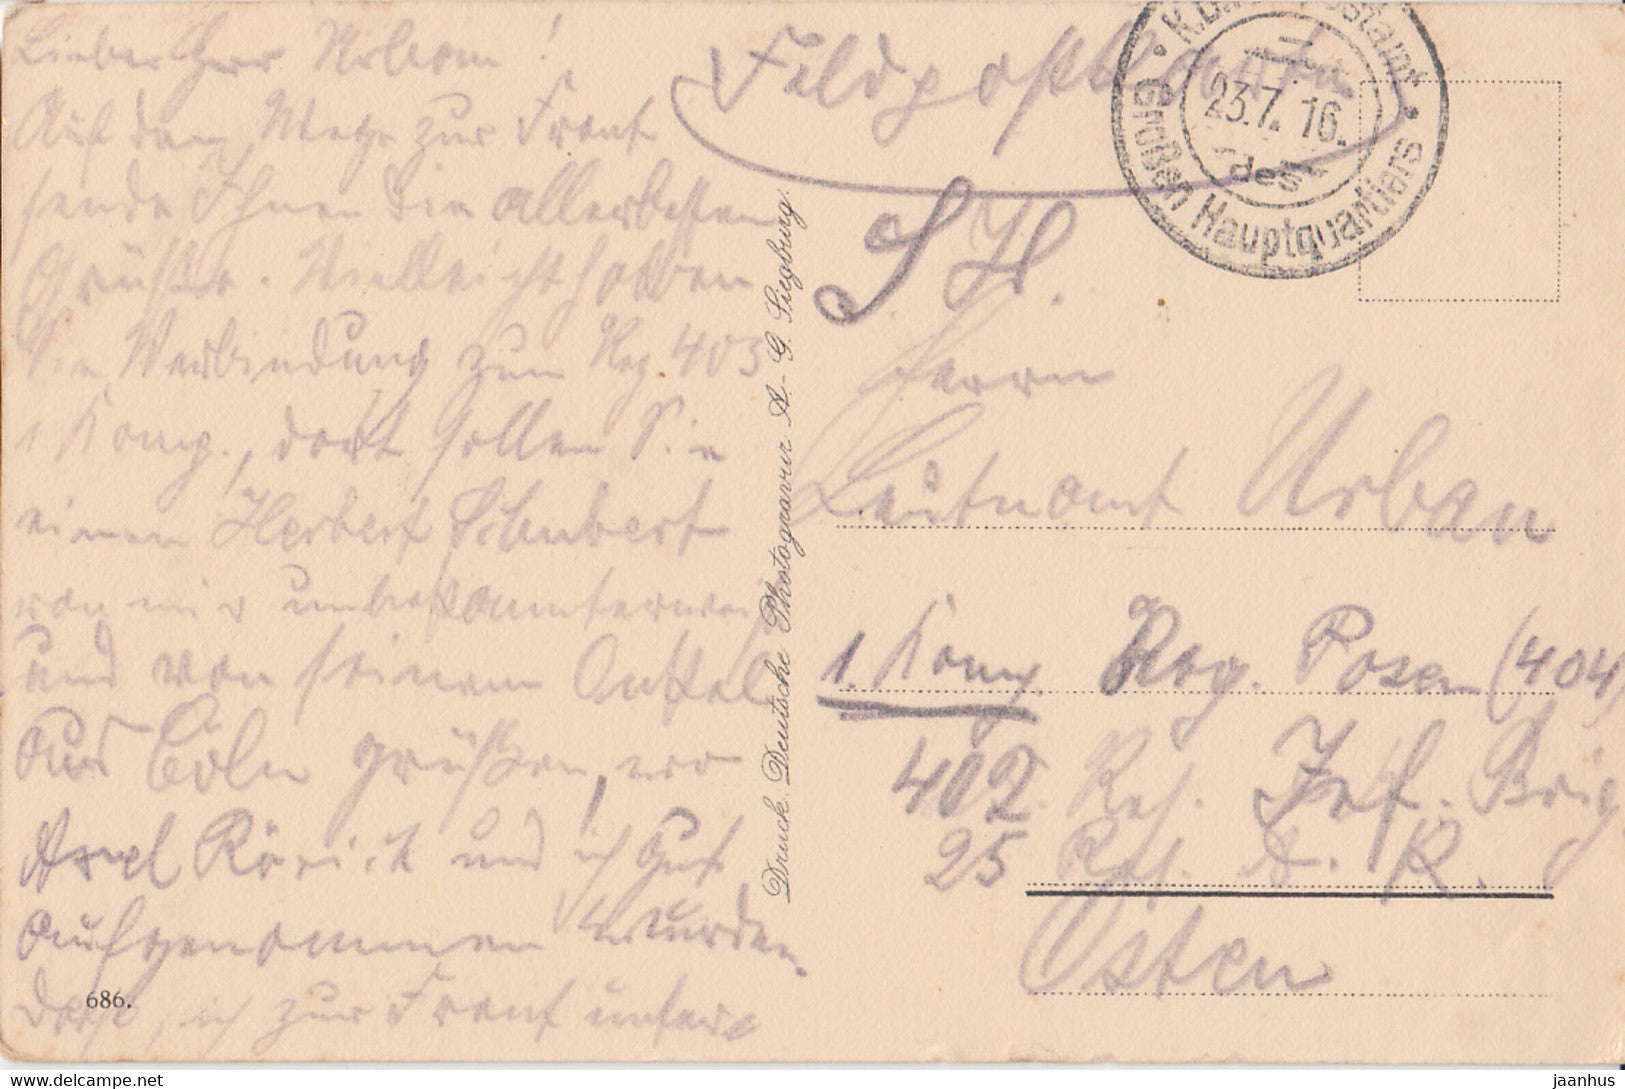 Lieber Herr Urban!
Auf dem Wege zur Front
sende Ihnen die allerbesten
Grüße. Vielleicht haben
Sie Verbindung zum Reg. 403
1 Komp., dort sollen Sie
einen Herbert Schubert
von mir unbekannterweise
und von seinem Onkel
aus Cöln grüßen, wo
Axel Rörich und ich gut
aufgenommen wurden.
ich zur Front
686.
Druck. Deutsche Photogravur A.-G. Siegburg.
Feldpostkarte
K.D. Postamt
23.7. 16.
des
Großen Hauptquartiers
S. H.
Herrn
Leutnant Urban
1. Komp. Reg. Posen (404)
402. Res. Inf. Brig
25 Res. D. R.
Osten
jaanhus
delcampe.net